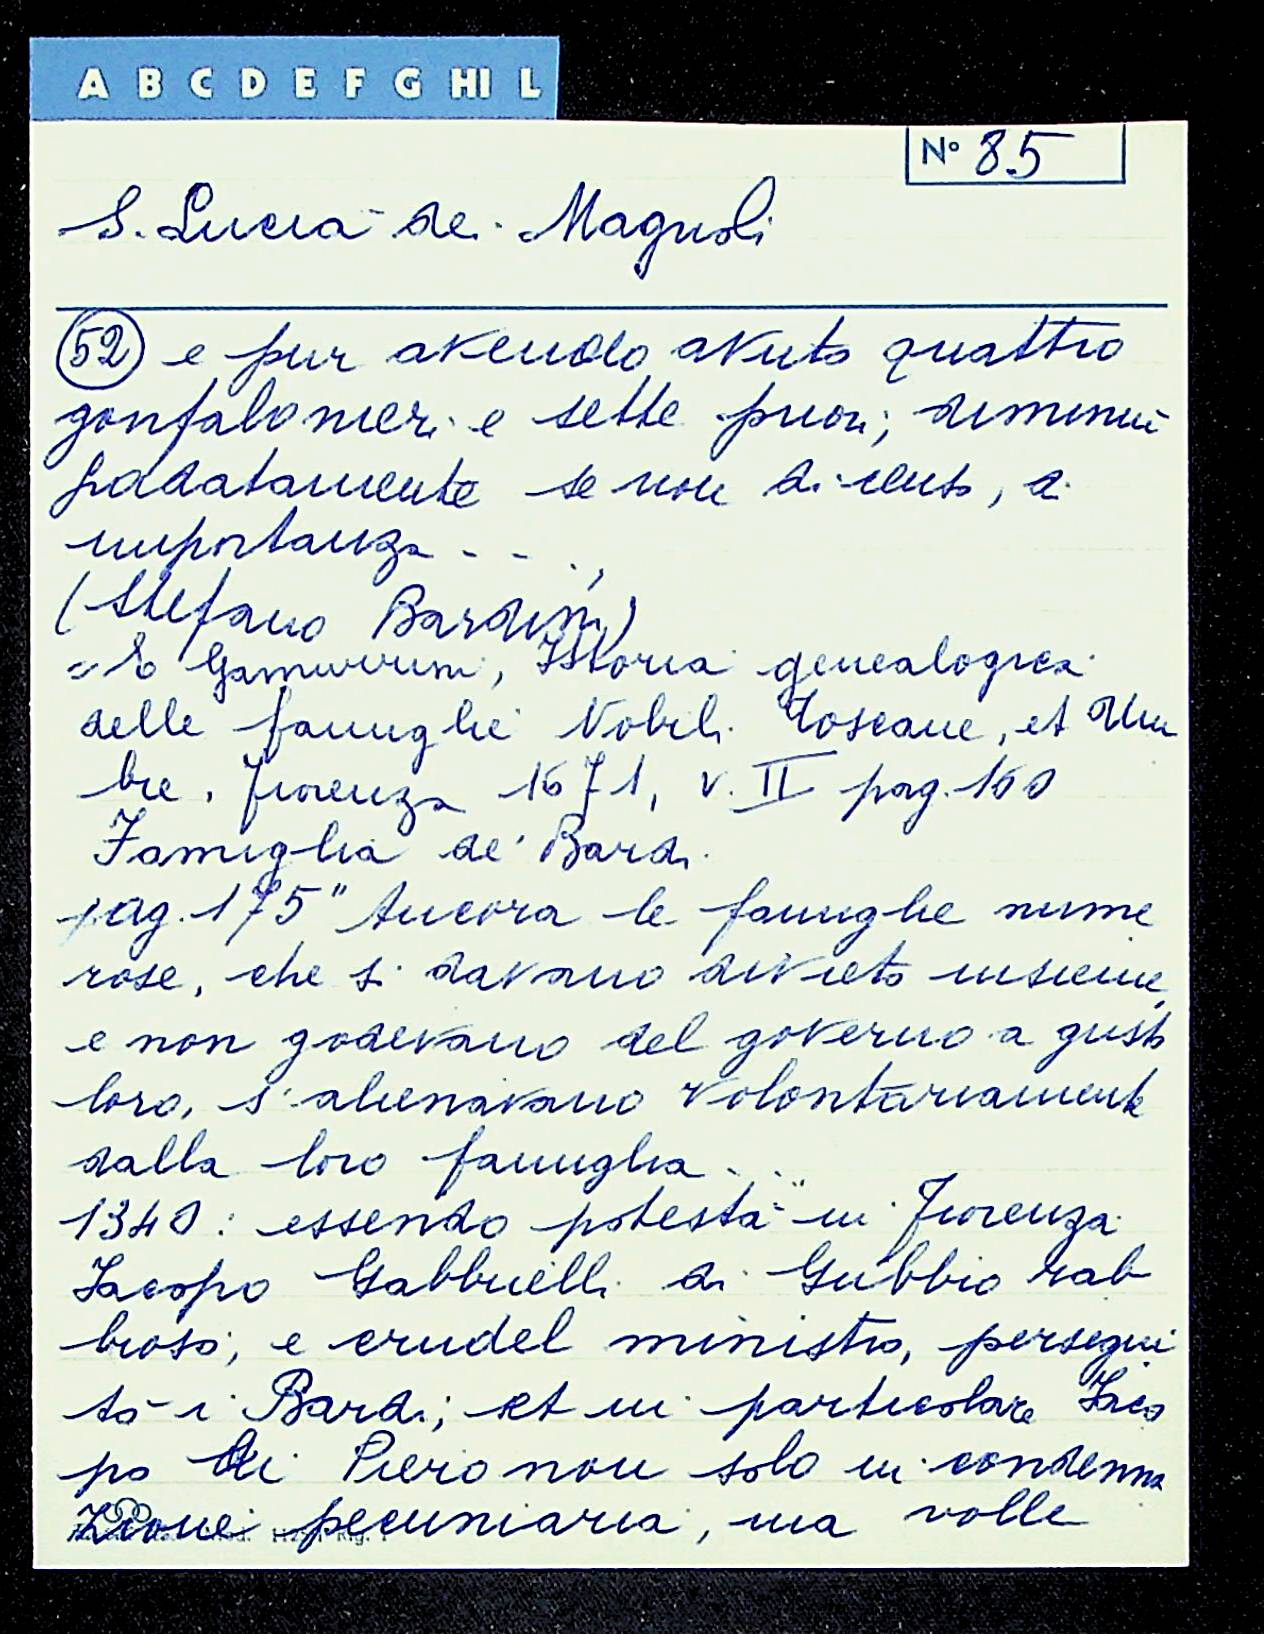 A B C D E F G HI L
N° 85
S. Lucia de' Magnoli
52 e pur avendo avuto quattro
gonfalonieri e sette priori; diminuì
gradatamente se non di censo, di
importanza...
(Stefano Bardini)
= E Gamurrini, Istoria genealogica
delle famiglie Nobili Toscane, et Um
bre, Fiorenza 1671, v. II pag. 160
Famiglia de' Bardi
pag. 175 "Ancora le famiglie nume
rose, che si davano divieto insieme,
e non godevano del governo a gusto
loro, s'alienavano volontariamente
dalla loro famiglia...
1340: essendo potestà in Fiorenza
Iacopo Gabbrielli di Gubbio rab
bioso, e crudel ministro, persegui
tò i Bardi; et in particolare Iaco
po di Piero non solo in condenna
zione pecuniaria, ma volle